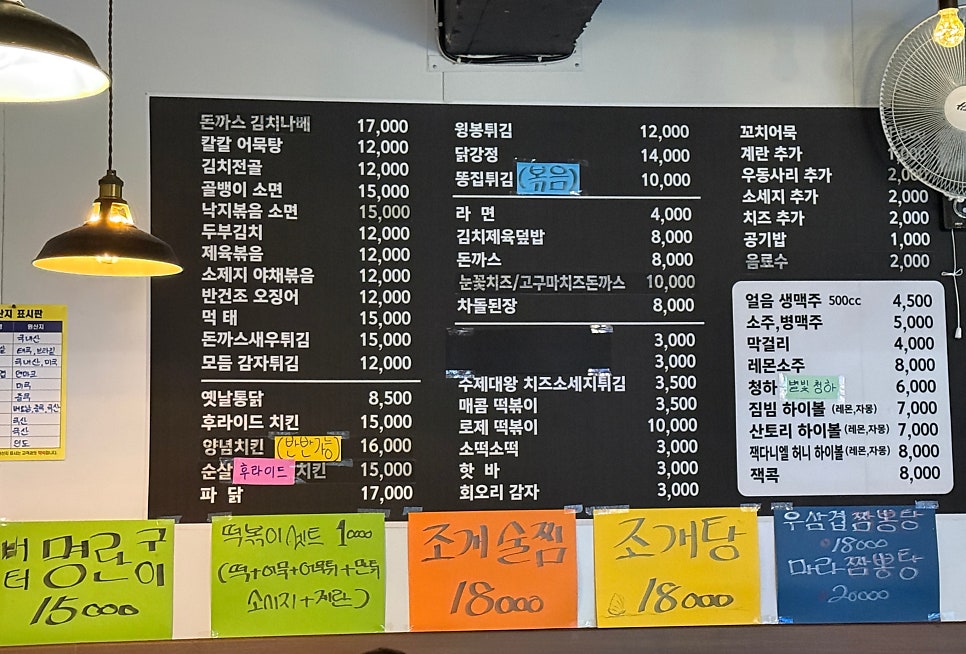 돈까스 김치나베 17,000
칼칼 어묵탕 12,000
김치전골 12,000
골뱅이 소면 15,000
낙지볶음 소면 15,000
두부김치 12,000
제육볶음 12,000
소제지 야채볶음 12,000
반건조 오징어 12,000
먹 태 15,000
돈까스새우튀김 15,000
모듬 감자튀김 12,000
옛날통닭 8,500
후라이드 치킨 15,000
양념치킨 (반반가능) 16,000
순살 후라이드 치킨 15,000
파 닭 17,000
윙봉튀김 12,000
닭강정 14,000
똥집튀김 (볶음) 10,000
라 면 4,000
김치제육덮밥 8,000
돈까스 8,000
눈꽃치즈/고구마치즈돈까스 10,000
차돌된장 8,000
3,000
3,000
수제대왕 치즈소세지튀김 3,500
매콤 떡볶이 3,500
로제 떡볶이 10,000
소떡소떡 3,000
핫 바 3,000
회오리 감자 3,000
꼬치어묵
계란 추가
우동사리 추가
소세지 추가 2,000
치즈 추가 2,000
공기밥 1,000
음료수 2,000
얼음 생맥주 500cc 4,500
소주,병맥주 5,000
막걸리 4,000
레몬소주 8,000
청하 별빛청하 6,000
짐빔 하이볼 (레몬,자몽) 7,000
산토리 하이볼 (레몬,자몽) 7,000
잭다니엘 허니 하이볼 (레몬,자몽) 8,000
잭콕 8,000
표시판
원산지
국내산
국내산, 미국
덴마크
미국
중국
국산
국산
인도
버터 명란구이
15000
떡볶이셋트 10000
(떡+어묵+야채튀+만튀
소시지+계란)
조개술찜
18000
조개탕
18000
우삼겹짬뽕탕
18000
마라짬뽕탕
20000